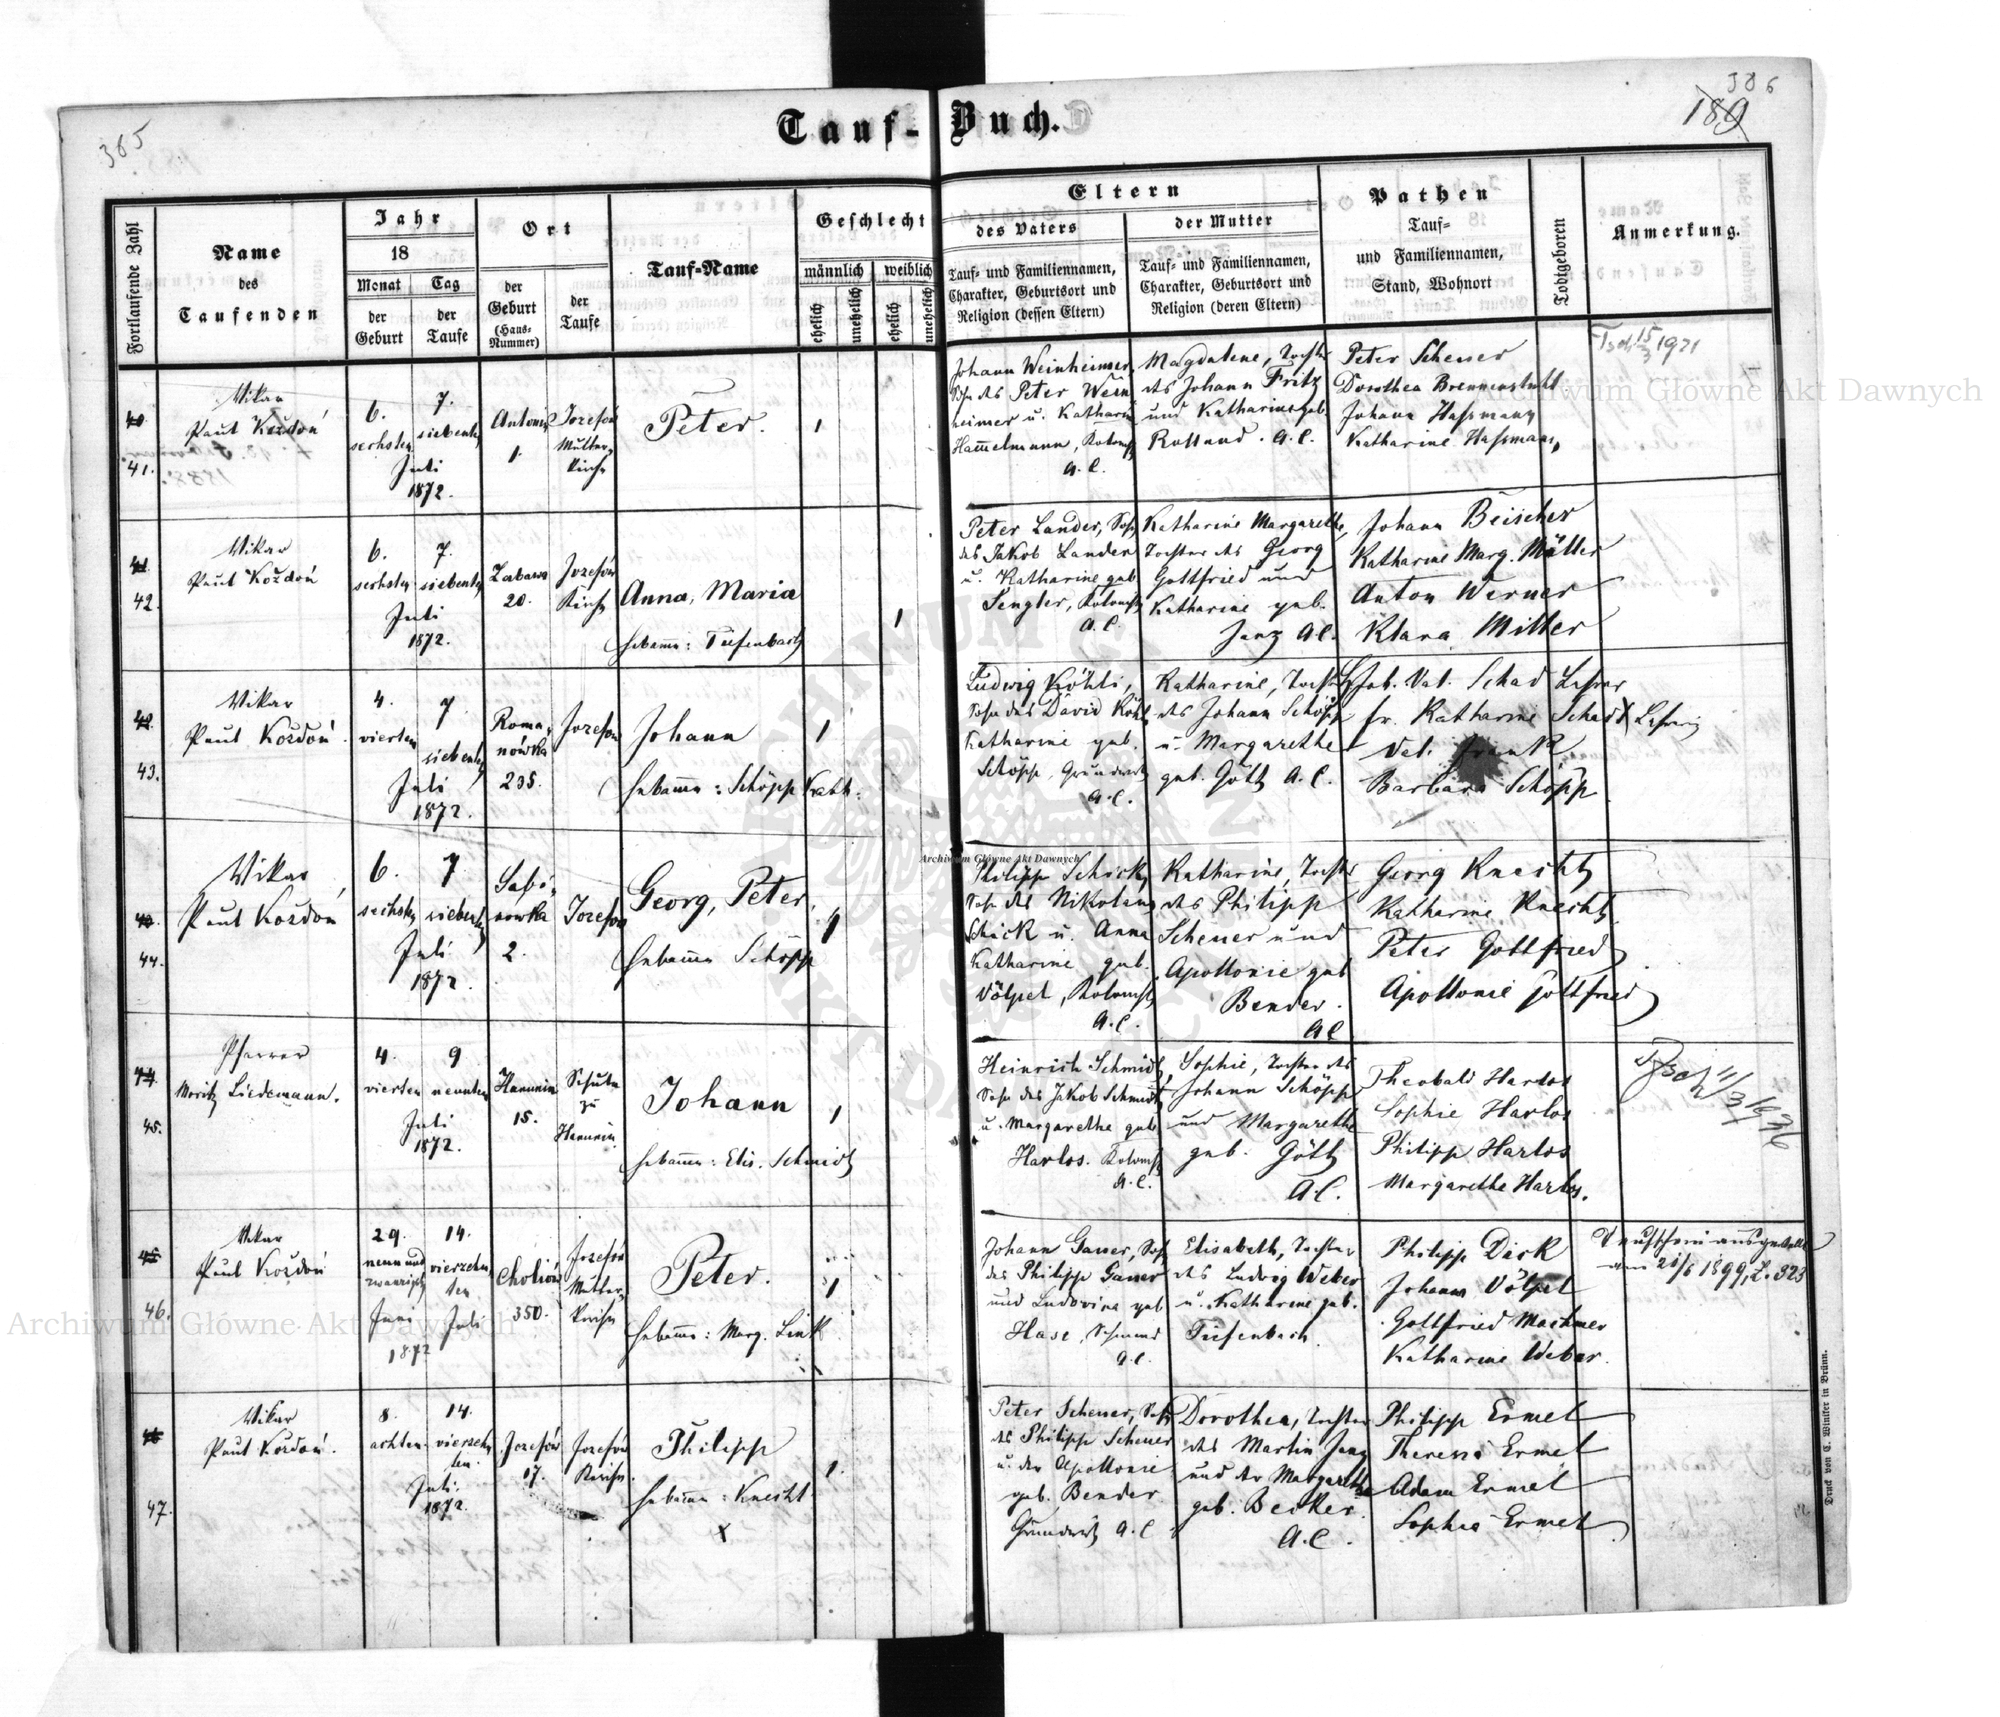 365
306
189
Tauf-Buch.
Fortlaufende Zahl
Name
des
Taufenden
Jahr
18
Monat
Tag
der
Geburt
der
Taufe
Ort
der
Geburt
(Haus-
Nummer)
der
Taufe
Tauf-Name
Geschlecht
männlich
weiblich
ehelich
unehelich
ehelich
unehelich
Eltern
des Vaters
Tauf- und Familiennamen,
Charakter, Geburtsort und
Religion (dessen Eltern)
der Mutter
Tauf- und Familiennamen,
Charakter, Geburtsort und
Religion (deren Eltern)
Pathen
Tauf-
und Familiennamen,
Stand, Wohnort
Todtgeboren
Anmerkung.
40
41.
Vikar
Paul Koždoń
6.
sechsten
7.
siebenten
Juli
1872.
1.
Josefów
Mutter-
kirche
Peter.
1
Johann Weinheimer,
Sohn des Peter Wein-
heimer u. Katharina
Hammelmann, Kolonist
A.C.
Magdalene, Tochter
des Johann Fritz
und Katharine geb.
Rolland. A.C.
Peter Scheuer
Dorothea Brennenstuhl
Johann Hassmann
Katharine Hassmann
15/3 1921
41
42.
Vikar
Paul Koždoń
6.
sechsten
7.
siebenten
Juli
1872.
20.
Jozefów
Kirche
Anna, Maria
Hebamme: Tiefenbach
1
Peter Lander, Sohn
des Jakob Lander
u. Katharine geb.
Sengler, Kolonist
A.C.
Katharine Margarethe,
Tochter des Georg
Gottfried und
Katharine geb.
Janz A.C.
Johann Beischer
Katharine Marg. Müller
Anton Werner
Klara Miller
42
43.
Vikar
Paul Koždoń
4.
vierten
7
siebenten
Juli
1872.
Roma-
nówka
235.
Jozefów
Johann
Hebamme: Schöpp Kath.
1
Ludwig Köhli,
Sohn des David Köhli
Katharine geb.
Schöpp, Grundwirth
A.C.
Katharine, Tochter
des Johann Schöpp
u. Margarethe
geb. Gött A.C.
Joh. Val. Schad Lehrer
fr. Katharine Schad Lehrerin
Val. Frank
Barbara Schöpp
43
44.
Vikar
Paul Koždoń
6.
sechsten
7
siebenten
Juli
1872.
Sabi-
nowka
2.
Jozefow
Georg, Peter
Hebamme Schöpp
1
Philipp Schick,
Sohn des Nikolaus
Schick u. Anna
Katharine geb.
Völpel, Kolonist
A.C.
Katharine, Tochter
des Philipp
Scheuer und
Apollonie geb
Bender.
A.C.
Georg Knecht
Katharine Knecht
Peter Gottfried
Apollonie Gottfried
44
45.
Pfarrer
Moritz Liedemann.
4.
vierten
9
neunten
Juli
1872.
Hanunin
15.
Schule
zu
Hanunin
Johann
Hebamme: Elis. Schmidt
1
Heinrich Schmidt,
Sohn des Jakob Schmidt
u. Margarethe geb
Harlos. Kolonist
A.C.
Sophie, Tochter des
Johann Schöpp
und Margarethe
geb. Gött
A.C.
Theobald Harlos
Sophie Harlos
Philipp Harlos
Margarethe Harlos.
11/3 1936
45
46.
Vikar
Paul Koždoń
29.
neun und
zwanzigsten
Juni
1872
14.
vierzehn-
ten
Juli
Choliów
350.
Jozefów
Mutter-
kirche
Peter.
Hebamme: Marg. Link
1
Johann Gauer, Sohn
des Philipp Gauer
und Ludovina geb
Hase, Schmied
A.C.
Elisabeth, Tochter
des Ludwig Weber
u. Katharine geb.
Tiefenbach.
Philipp Dick
Johann Völpel
Gottfried Machmer
Katharine Weber.
Taufschein ausgestellt
am 21/6 1899, Z. 323
46
47.
Vikar
Paul Koždoń.
8.
achten
14.
vierzehn-
ten.
Juli.
1872.
Jozefów
17.
Jozefów
Kirche.
Philipp
Hebamme: Knecht.
X
1.
Peter Scheuer, Sohn
des Philipp Scheuer
u. der Apollonie
geb. Bender
Grundwirth A.C.
Dorothea, Tochter
des Martin Janz
und der Margarethe
geb. Becker.
A.C.
Philipp Ermel
Theresia Ermel
Adam Ermel
Sophia Ermel
Druck von C. Winiker in Brünn.
Archiwum Główne Akt Dawnych
Archiwum Główne Akt Dawnych
Archiwum Główne Akt Dawnych